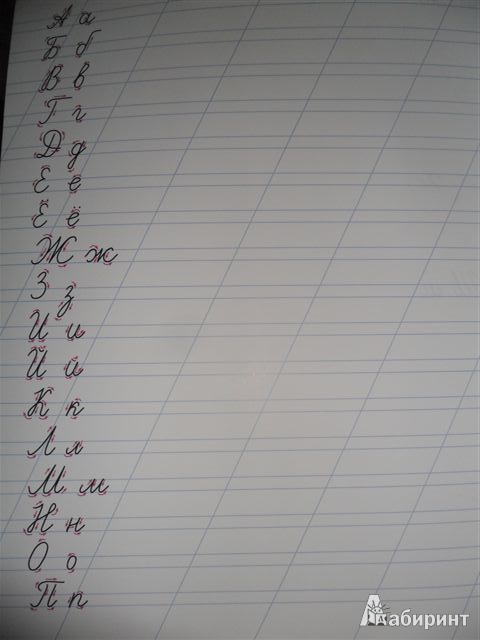 А а
Б б
В в
Г г
Д д
Е е
Ё ё
Ж ж
З з
И и
Й й
К к
Л л
М м
Н н
О о
П п
Лабиринт